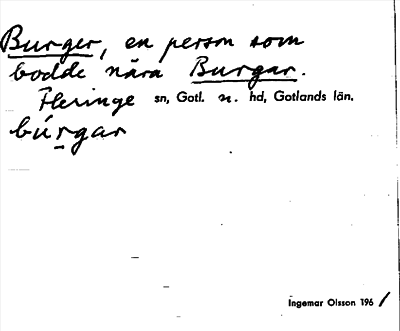 Burger, en person som
bodde nära Burgar.
Fleringe sn, Gotl. n. hd, Gotlands län.
búrgar
Ingemar Olsson 1961